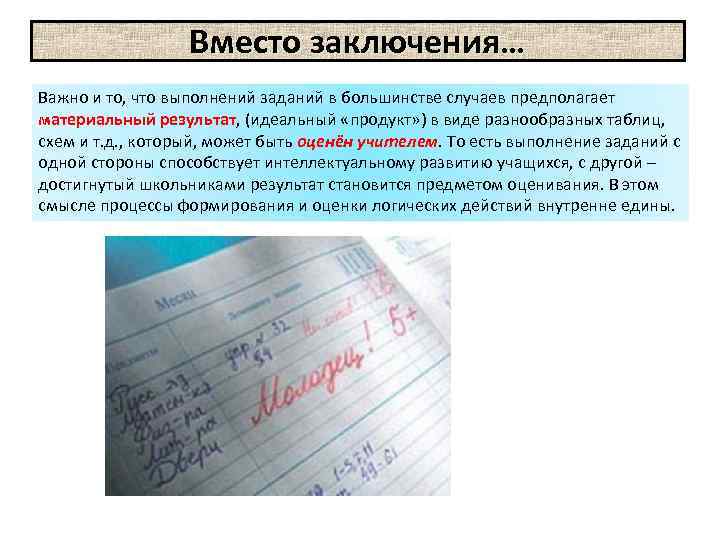 Вместо заключения…
Важно и то, что выполнений заданий в большинстве случаев предполагает
материальный результат, (идеальный «продукт») в виде разнообразных таблиц,
схем и т.д., который, может быть оценён учителем. То есть выполнение заданий с
одной стороны способствует интеллектуальному развитию учащихся, с другой –
достигнутый школьниками результат становится предметом оценивания. В этом
смысле процессы формирования и оценки логических действий внутренне едины.
Месяц
Предметы
упр. 32
54
Молодец! 5+
Русс. яз
Матем-ка
Физ-ра
Лит-ра